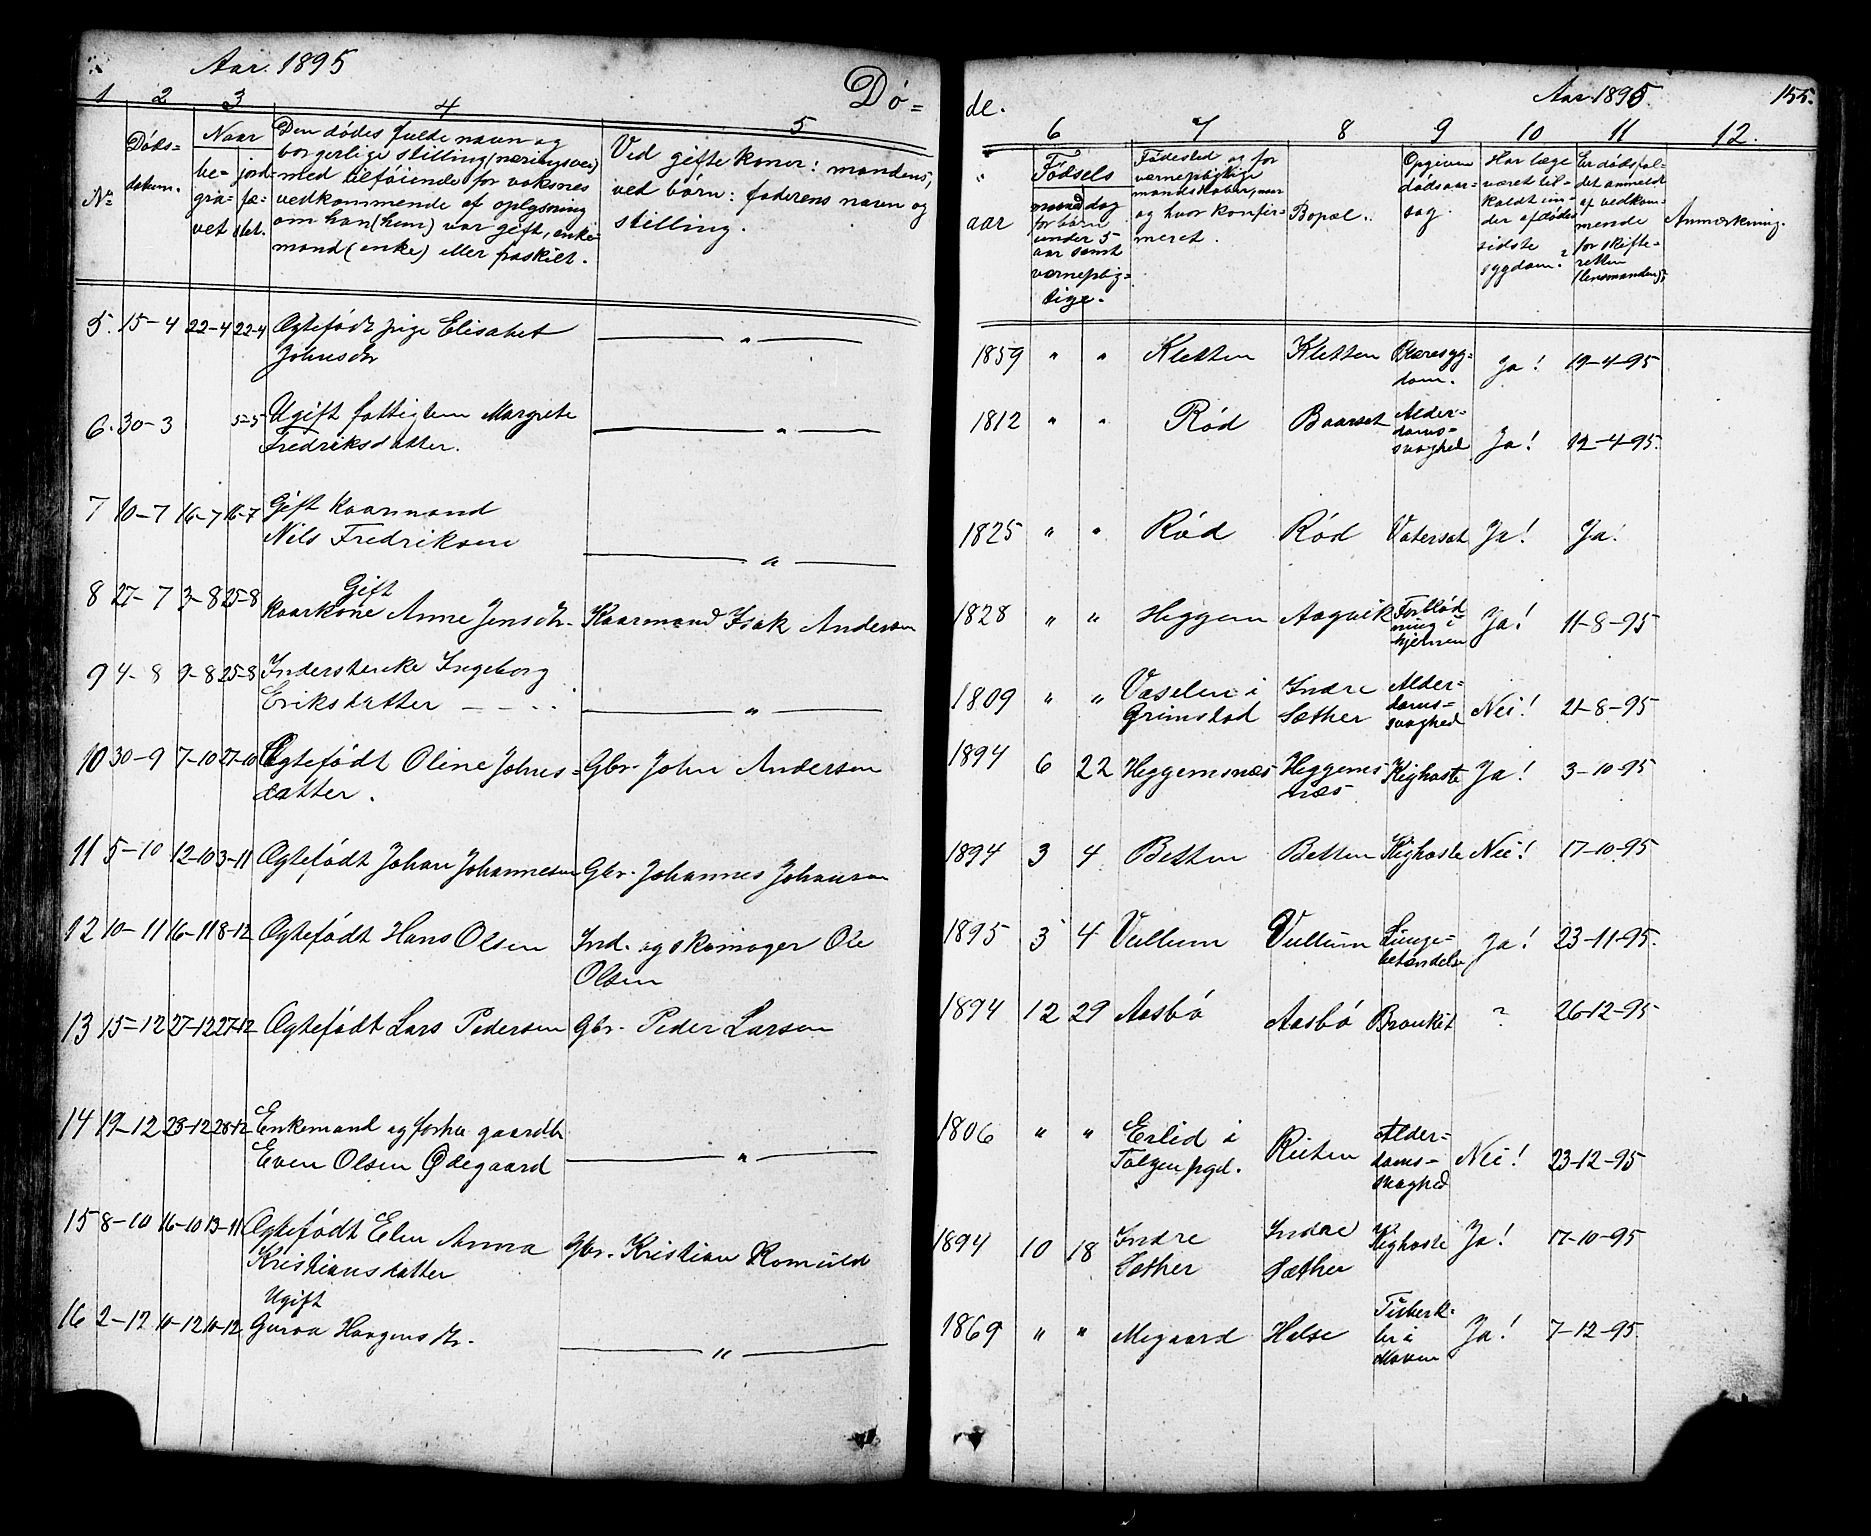 Aar. 1895
Dø=
1 2 3 4 5
No
Døds=
datum.
Naar
be=
gra=
vet
jord=
fæ=
stet.
Den dødes fulde navn og
borgerlige stilling (næringsvei)
med tilføiende for voksnes
vedkommende af oplysning
om han (hun) var gift, enke=
mand (enke) eller fraskilt.
Ved gifte koner: mandens,
ved børn: faderens navn og
stilling.
5. 15-4 22-4 22-4 Ægtefødt pige Elisabet — " —
Johnsdtr
6. 30-3 5-5 Ugift fattiglem Margrete — " —
Fredriksdatter.
7 10-7 16-7 16-7 Gift Kaarmand
Nils Fredriksen — " —
8 27-7 3-8 25-8 Gift
Kaarkone Anne Jensdtr. Kaarmand Isak Andersen
9 4-8 9-8 25-8 Inderstenke Ingeborg
Eriksdatter — " —
10 30-9 7-10 27-10 Ægtefødt Oline Johns= Gbr. John Andersen
datter.
11 5-10 12-10 3-11 Ægtefødt Johan Johannesen Gbr. Johannes Johansen
12 10-11 16-11 8-12 Ægtefødt Hans Olsen Ind. og skomager Ole
Olsen
13 15-12 27-12 27-12 Ægtefødt Lars Pedersen Gbr. Peder Larsen
14 19-12 28-12 28-12 Enkemand og forhv. gaardbr
Even Olsen Ødegaard — " —
15 8-10 16-10 13-11 Ægtefødt Elen Anna Gbr. Kristian Romuld
Kristiansdatter
16 2-12 10-12 10-12 Ugift
Guroa Haagensdtr. — " —
de.
Aar 1895. 155.
6 7 8 9 10 11 12.
"
aar
Fødsels
maaned dag
for børn
under 5
aar samt
værneplig=
tige.
Fødested og for
værnepligtige
mandskaber, naar
og hvor konfir=
meret.
Bopæl.
Opgiven
dødsaar=
sag.
Har læge
været til=
kaldt un=
der afdødes
sidste
sygdom?
Er dødsfal=
det anmeldt
af vedkom=
mende
for skifte=
retten
(lensmanden)?
Anmærkning.
1859 " " Kletten Kletten Blæresyg= Ja! 19-4-95
dom.
1812 " " Rød Baarset Alder=
doms=
svaghed Ja! 12-4-95.
1825 " " Rød Rød Vatersot Ja! Ja!
1828 " " Heggem Aagvik Forblød
ning i
hjernen Ja! 11-8-95
1809 " " Vaselen i Indre Alder=
Grimstad Sæther doms=
svaghed Nei! 21-8-95
1894 6 22 Heggemsnæs Heggems Kighoste Ja! 3-10-95
næs
1894 3 4 Betten Betten Kighoste Nei! 17-10-95
1895 3 4 Vullum Vullum Lunge=
betændelse Ja! 23-11-95.
1894 12 29 Aasbø Aasbø Bronkit ? 26-12-95
1806 " " Erlid i Reiten Alder=
Tolgen pgd. doms=
svaghed Nei! 23-12-95
1894 10 18 Indre Indre Kighoste Ja! 17-10-95
Sæther Sæther
1869 " " Megaard Halse Tuberk=
ler i
Maven Ja! 7-12-95